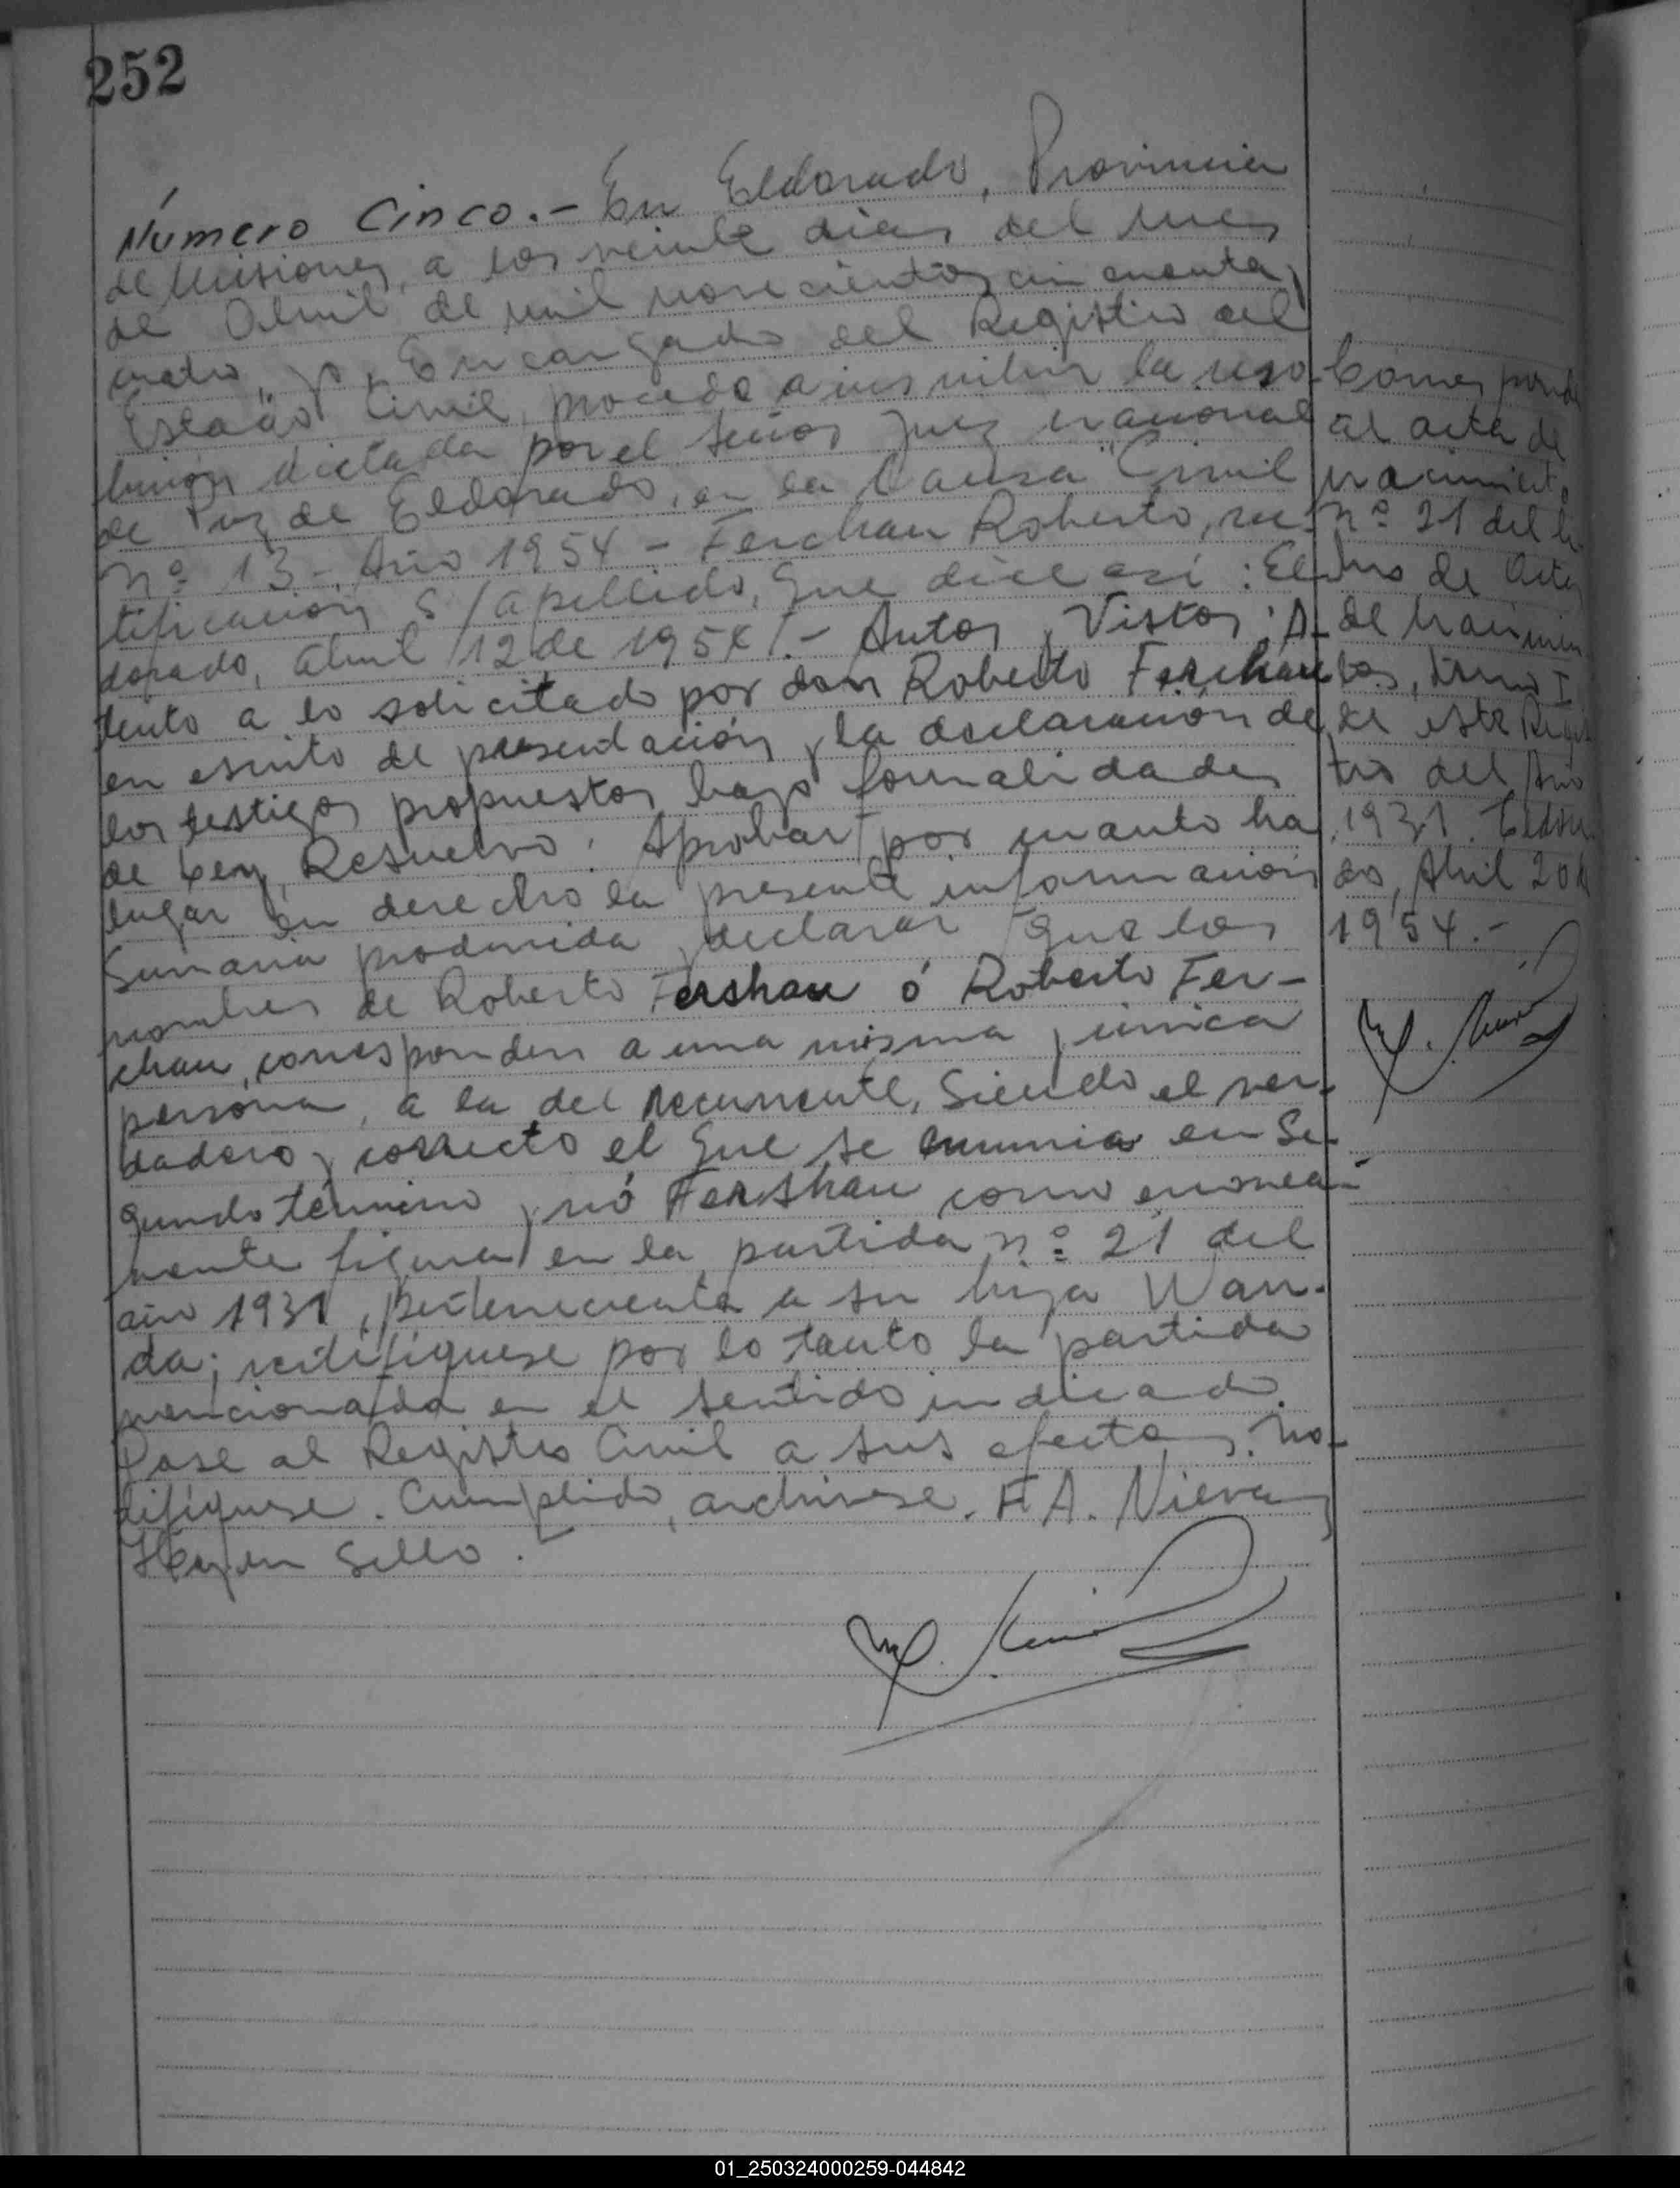 252
Número Cinco.- En Eldorado, Provincia
de Misiones, a los veinte dias del mes
de Abril de mil novecientos cincuenta y
cuatro, yo, Encargado del Registro del
Estado Civil, procedo a inscribir la reso-
lución dictada por el Señor Juez nacional
de Paz de Eldorado, en la Causa "Civil
nº 13 - Año 1954 - Ferchau Roberto, rec-
tificación s/apellido, que dice así: El-
dorado, Abril 12 de 1954.- Autos y Vistos: A-
tento a lo solicitado por don Roberto Ferchau
en escrito de presentación y la declaración de
los testigos propuestos bajo formalidades
de Ley, Resuelvo: Aprobar por cuanto ha
lugar en derecho la presente información
Sumaria producida y declarar que los
nombres de Roberto Fershau ó Roberto Fer-
chau, corresponden a una misma y única
persona, a la del recurrente, Siendo el ver-
dadero y correcto el que se enuncia en Se-
gundo término y nó Fershau como erronea-
mente figura en la partida nº 21 del
año 1931, perteneciente a su hija Wan-
da; rectifíquese por lo tanto la partida
mencionada en el sentido indicado.
Pase al Registro Civil a sus efectos. No-
tifíquese. Cumplido, archívese. F. A. Nieva
Hay un Sello.
Corresponde
al acta de
nacimiento
nº 21 del li-
bro de Actas
de Nacimien
tos, tomo I
de este Regis
tro del Año
1931. Eldora
do, Abril 20 de
1954.-
01_250324000259-044842